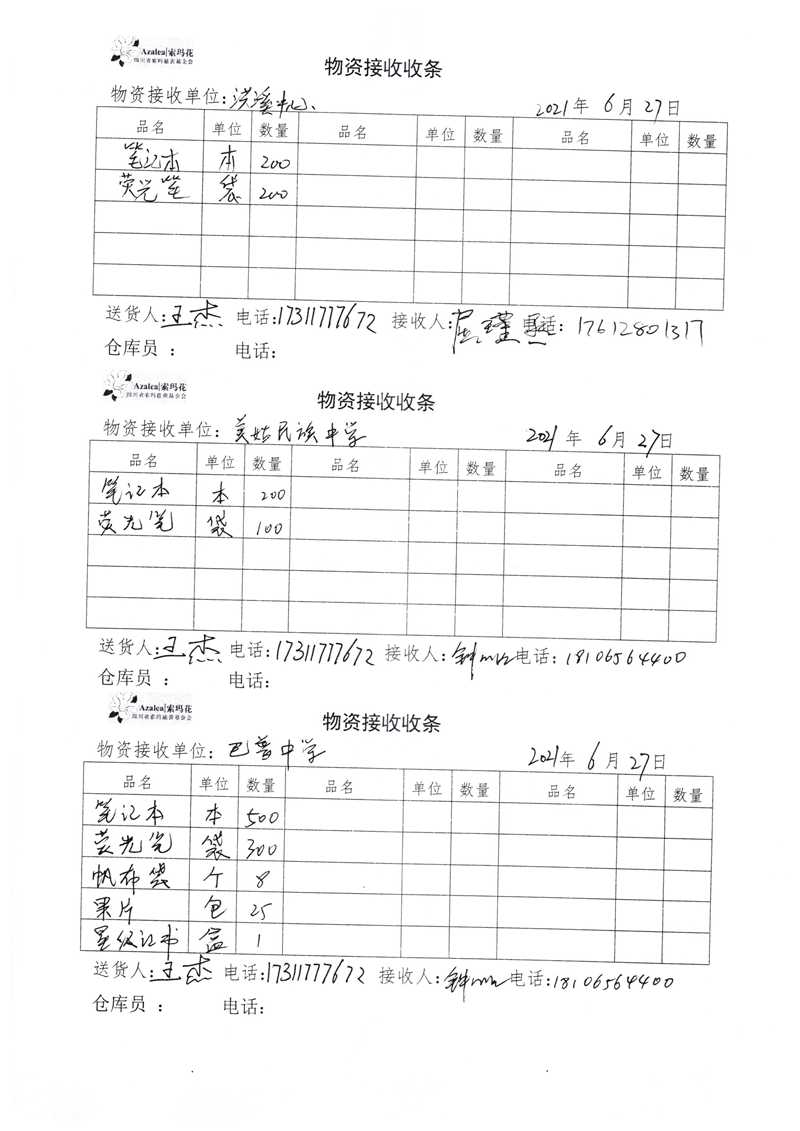 Azalea|索玛花
四川省索玛慈善基金会
物资接收收条
物资接收单位：洪溪中心、 2021年 6月27日
品名 单位 数量 品名 单位 数量 品名 单位 数量
笔记本 本 200
荧光笔 袋 200
送货人：王杰 电话：17311777672 接收人： 电话：17612801317
仓库员： 电话：
Azalea|索玛花
四川省索玛慈善基金会
物资接收收条
物资接收单位：美姑民族中学 2021年 6月27日
品名 单位 数量 品名 单位 数量 品名 单位 数量
笔记本 本 200
荧光笔 袋 100
送货人：王杰 电话：17311777672 接收人： 电话：18106564400
仓库员： 电话：
Azalea|索玛花
四川省索玛慈善基金会
物资接收收条
物资接收单位：巴普中学 2021年 6月27日
品名 单位 数量 品名 单位 数量 品名 单位 数量
笔记本 本 500
荧光笔 袋 300
帆布袋 个 8
果片 包 25
星级证书 盒 1
送货人：王杰 电话：17311777672 接收人： 电话：18106564400
仓库员： 电话：